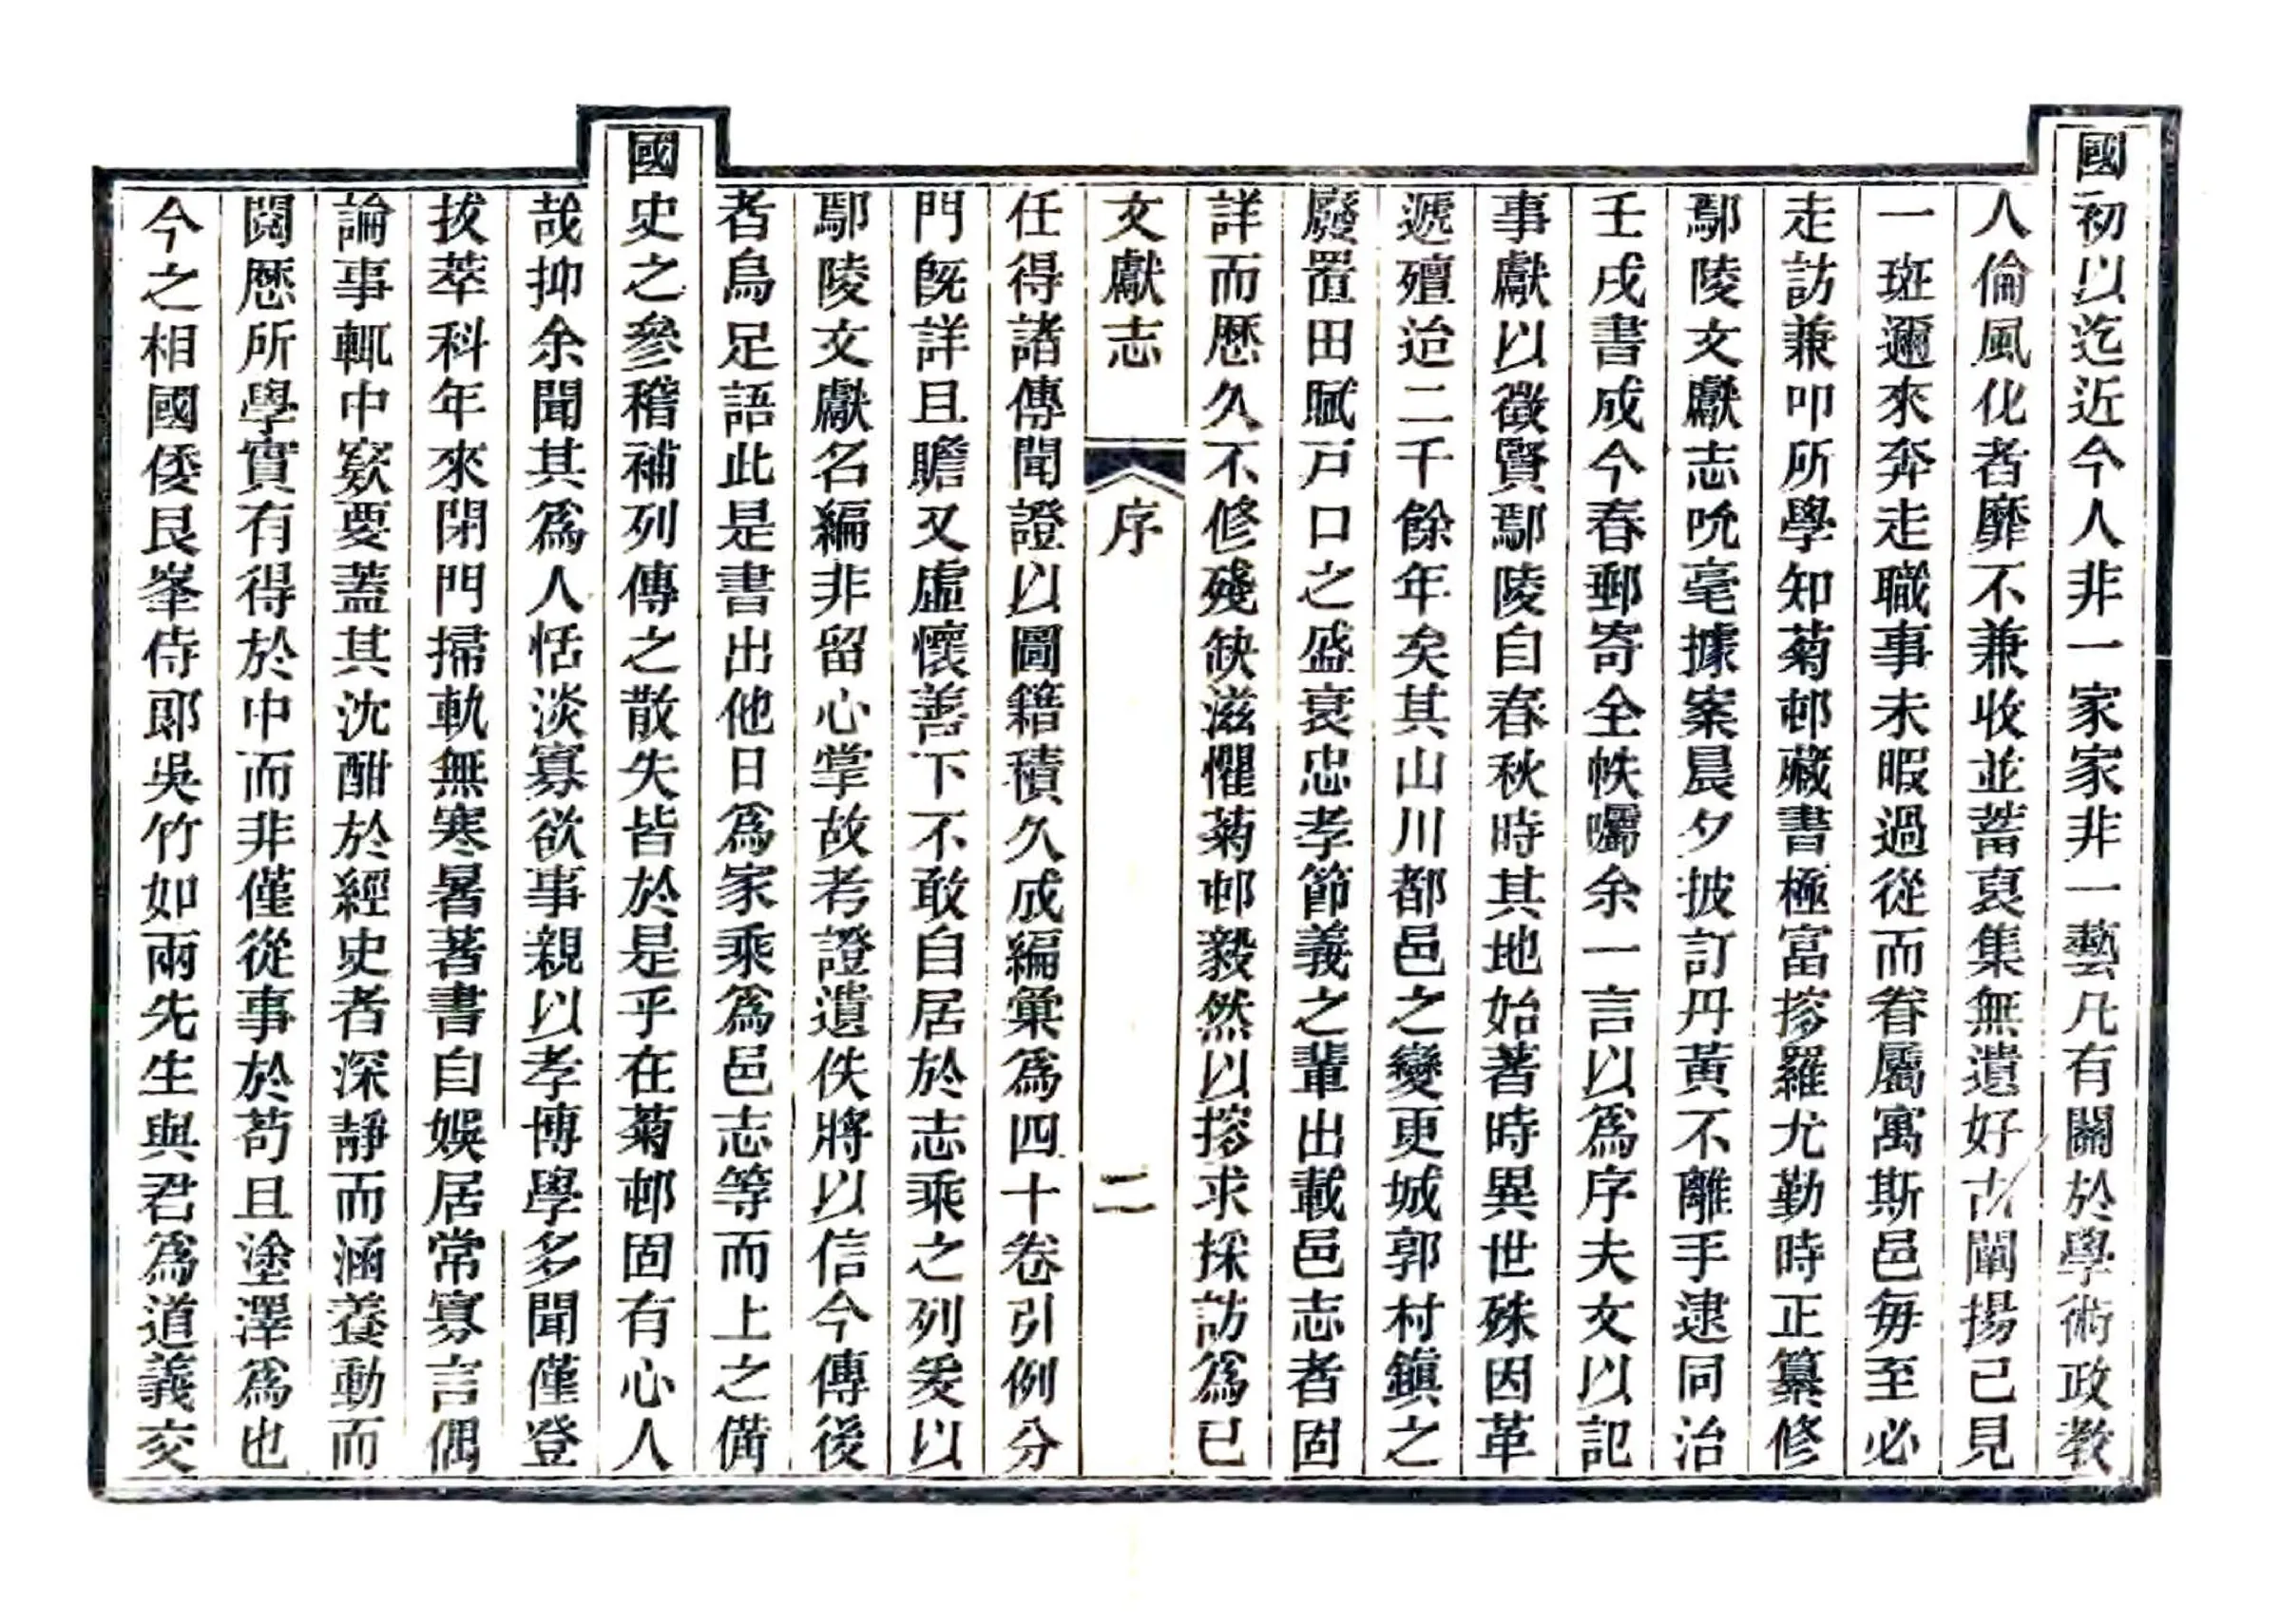 國初以迄近今人非一家家非一藝凡有關於學術政教
人倫風化者靡不兼收並蓄裒集無遺好古闡揚已見
一斑邇來奔走職事未暇過從而眷屬寓斯邑每至必
走訪兼叩所學知菊邨藏書極富搜羅尤勤時正纂修
鄢陵文獻志吮毫據案晨夕披訂丹黃不離手逮同治
壬戌書成今春郵寄全帙囑余一言以爲序夫文以記
事獻以徵賢鄢陵自春秋時其地始著時異世殊因革
遞殫迨二千餘年矣其山川都邑之變更城郭村鎮之
廢置田賦戸口之盛衰忠孝節義之輩出載邑志者固
詳而歷久不修殘缺滋懼菊邨毅然以搜求採訪爲已
文獻志 序 二
任得諸傳聞證以圖籍積久成編彙爲四十卷引例分
門旣詳且贍又虛懷善下不敢自居於志乘之列爰以
鄢陵文獻名編非留心掌故考證遺佚將以信今傳後
者烏足語此是書出他日爲家乘爲邑志等而上之備
國史之參稽補列傳之散失皆於是乎在菊邨固有心人
哉抑余聞其爲人恬淡寡欲事親以孝博學多聞僅登
拔萃科年來閉門掃軌無寒暑著書自娛居常寡言偶
論事輒中窾要蓋其沈酣於經史者深靜而涵養動而
閱歷所學實有得於中而非僅從事於苟且塗澤爲也
今之相國倭艮峯侍郎吳竹如兩先生與君爲道義交